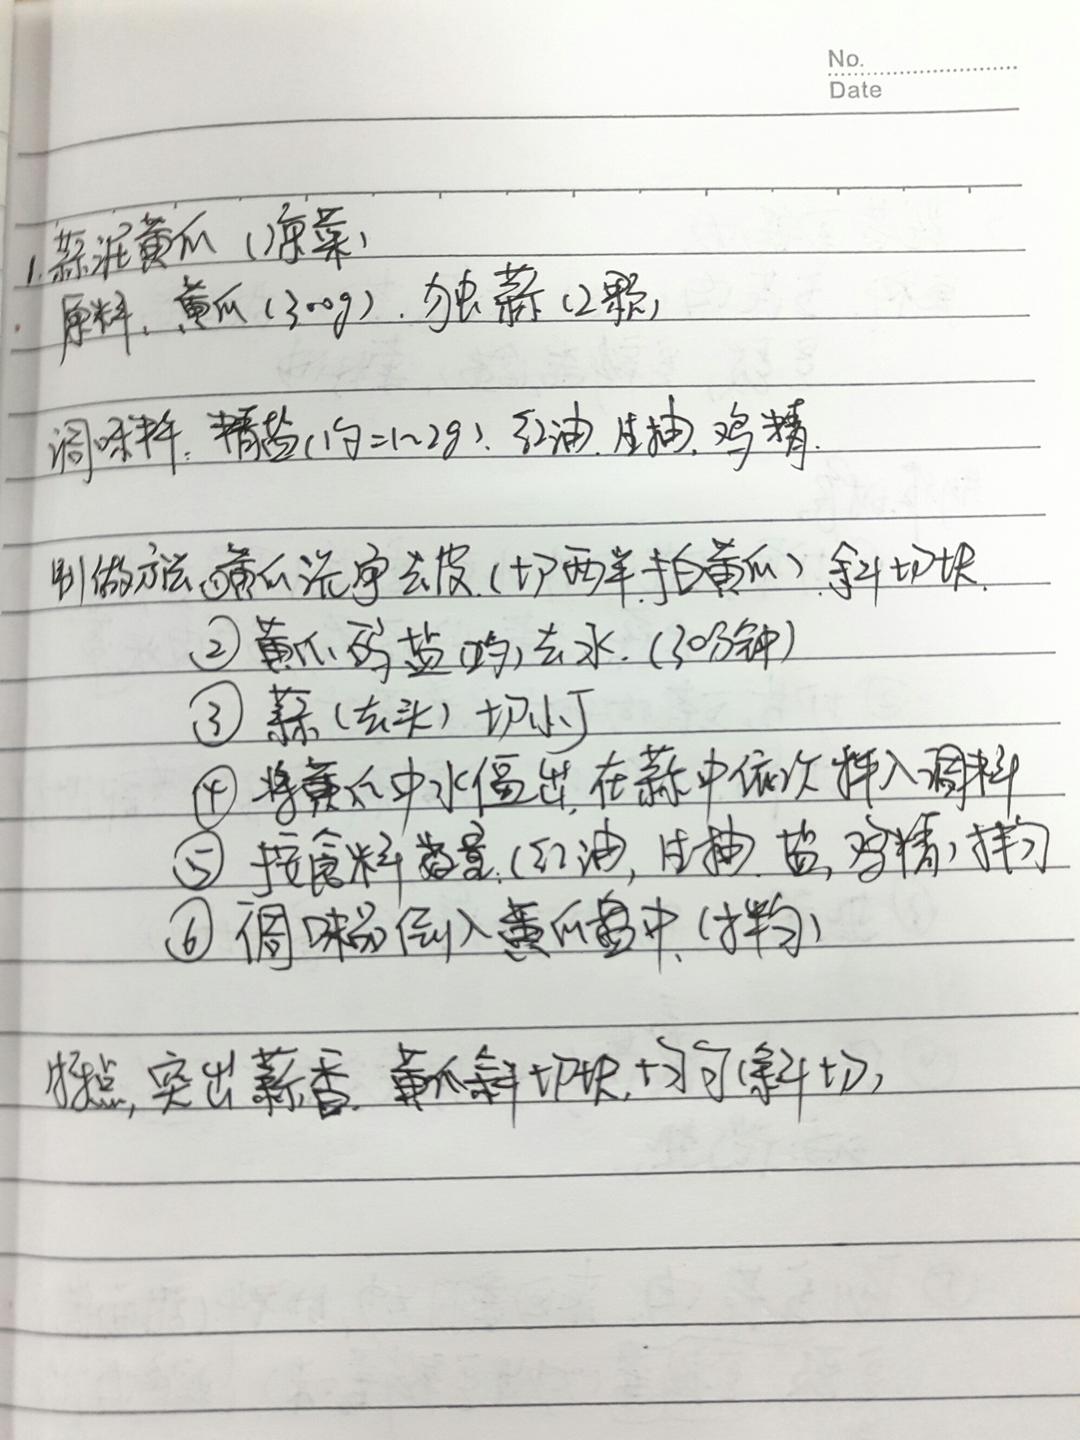 No.
Date
1. 蒜泥黄瓜（凉菜）
原料：黄瓜（300g）、独蒜（2颗）
调味料：精盐（1勺=1~2g）、红油、生抽、鸡精.
制做方法①黄瓜洗净去皮.（切两半,拍黄瓜）斜切块
② 黄瓜码盐 去水.（30分钟）
③ 蒜（去头）切小丁
④ 将黄瓜中水 出,在蒜中依次拌入调料
⑤ 按食料 量.（红油,生抽.盐,鸡精）拌匀
⑥ 调味 倒入黄瓜盘中.（拌匀）
特点,突出蒜香.黄瓜斜切块, （斜切）